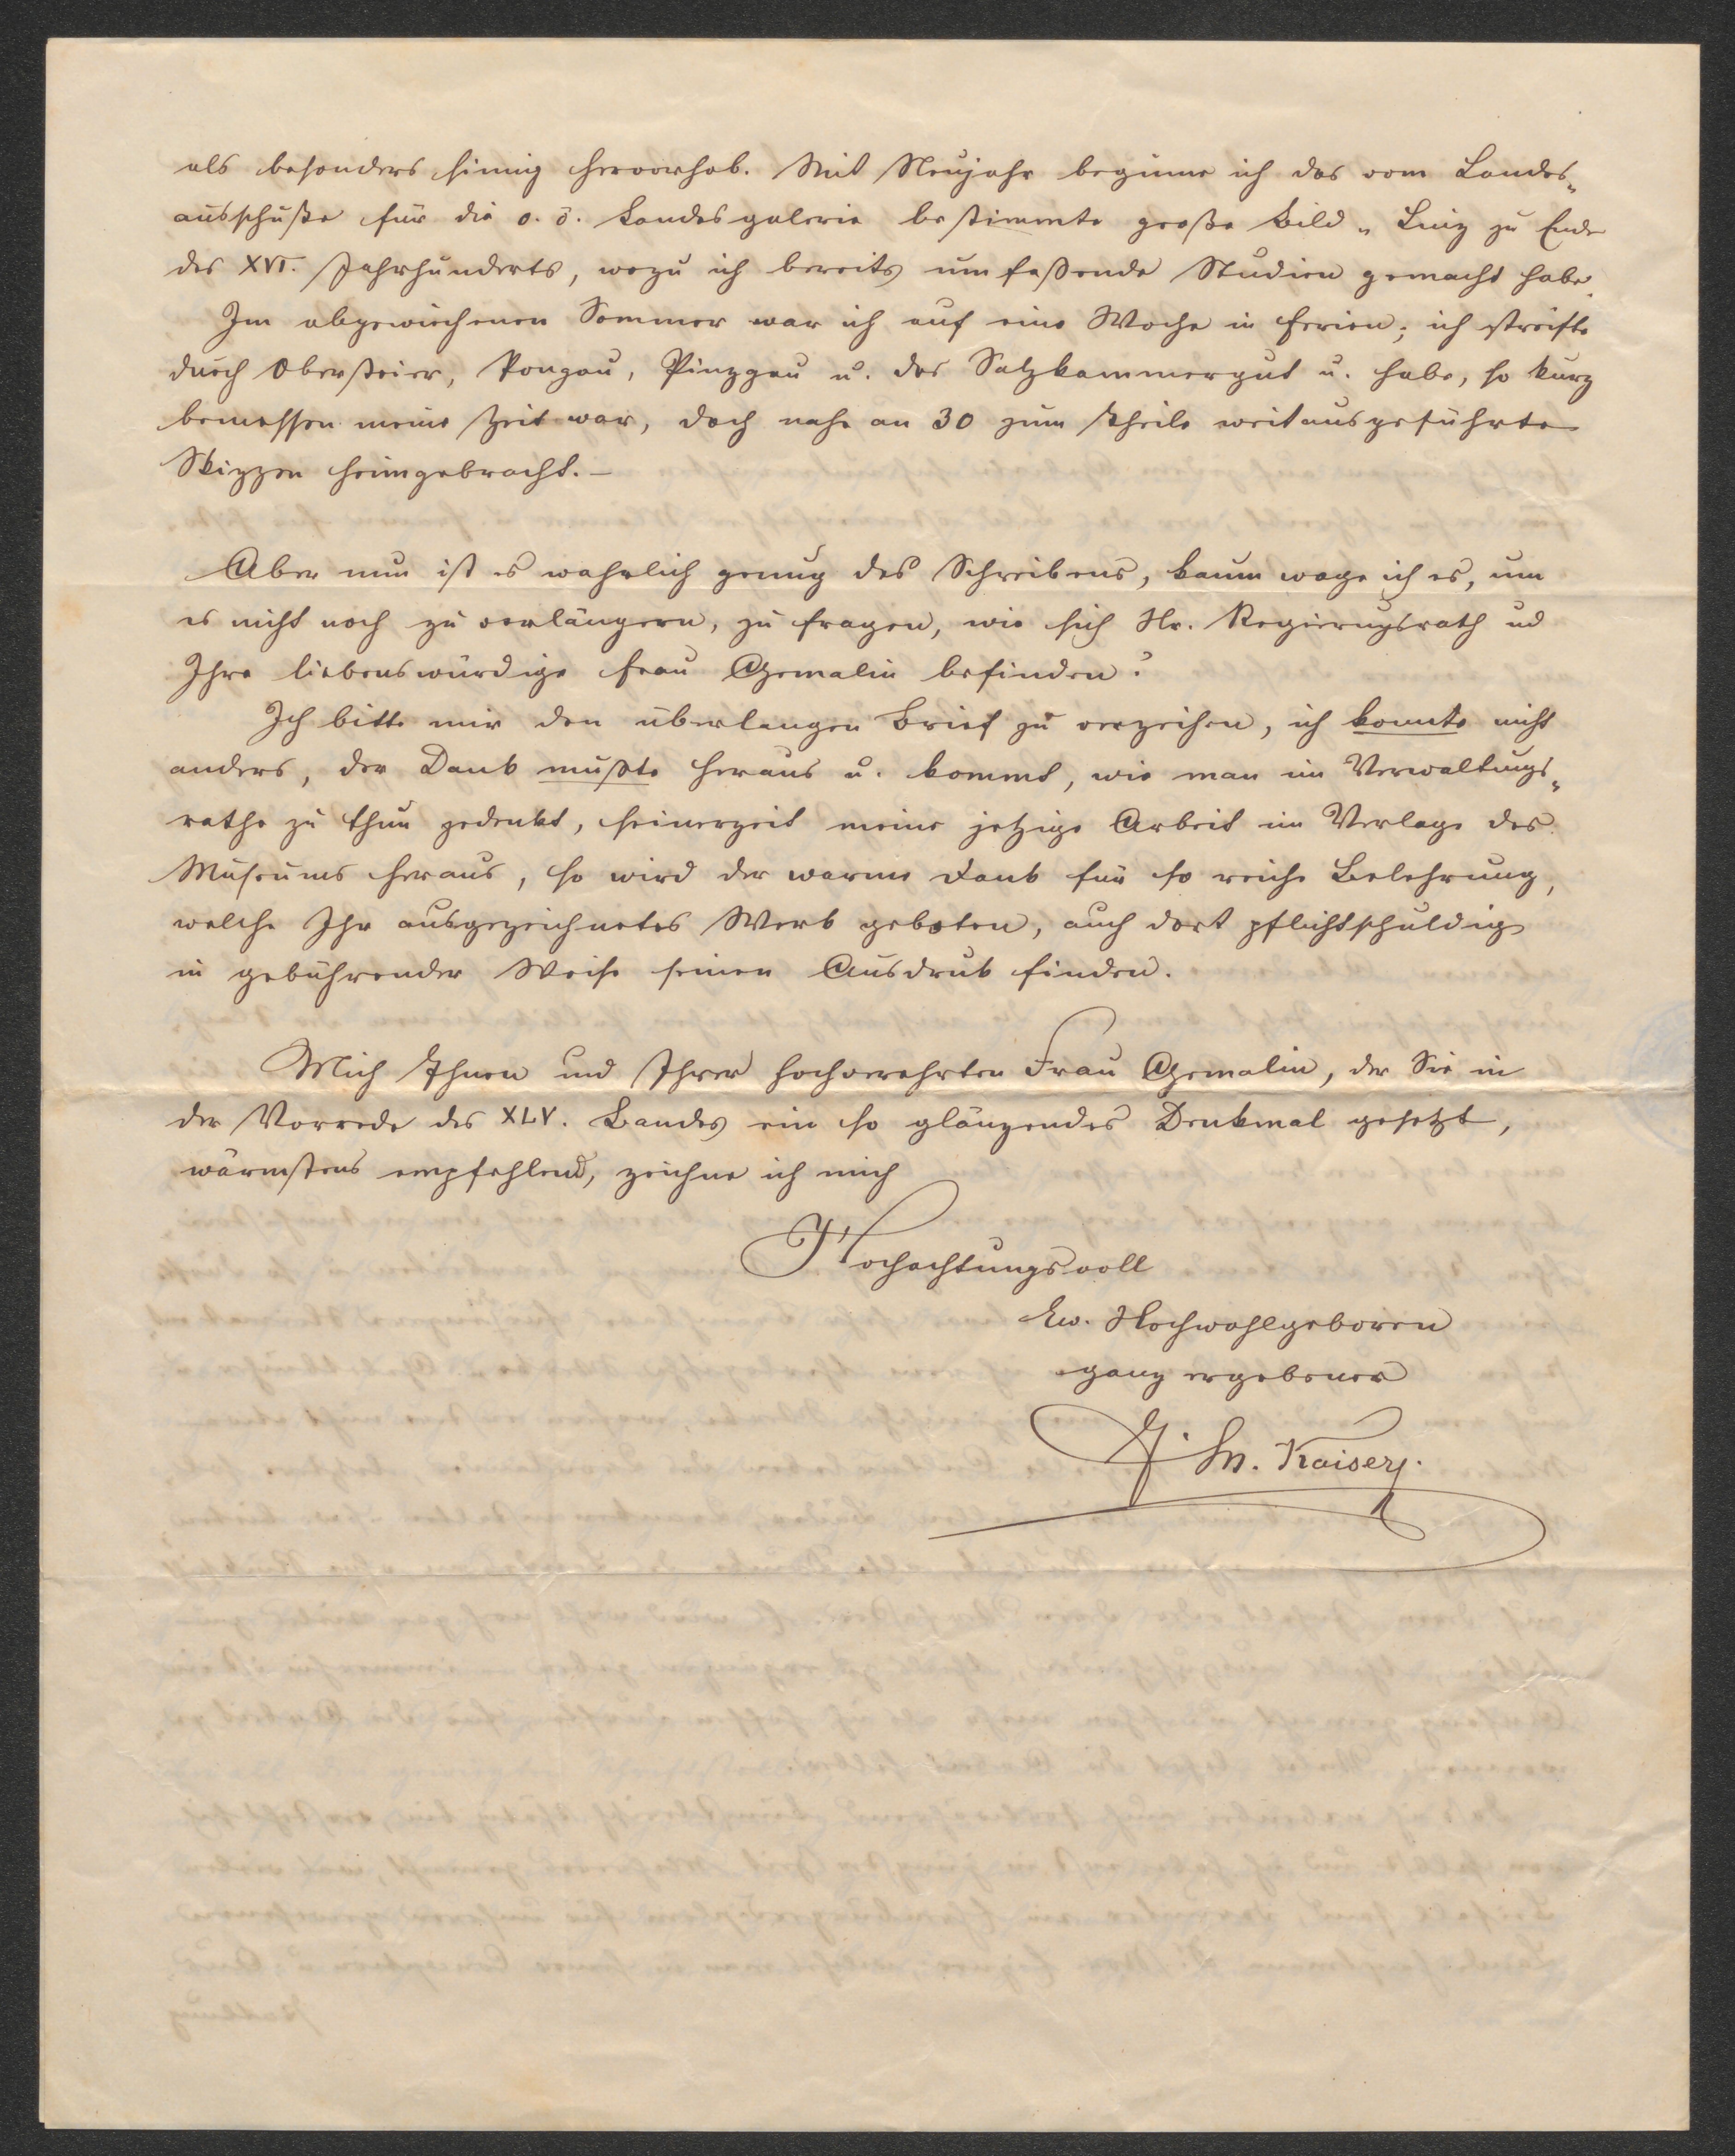 als besonders sinnig hervorhob. Mit Neujahr beginne ich das vom Landes„
ausschuße für die o. ö. Landesgalerie bestimmte große Bild „ Linz zu Ende
des XVI. Jahrhunderts, wozu ich bereits umfaßende Studien gemacht habe.
Im abgewichenen Sommer war ich auf eine Woche in Ferien; ich streifte
durch Obersteier, Pongau, Pinzgau u. das Salzkammergut u. habe, so kurz
bemessen meine Zeit war, doch nahe an 30 zum Theile weitausgeführte
Skizzen heimgebracht. –
Aber nun ist es wahrlich genug des Schreibens, kaum wage ich es, um
es nicht noch zu verlängern, zu fragen, wie sich Hr. Regierungsrath und
Ihre liebenswürdige Frau Gemalin befinden?
Ich bitte mir den überlangen Brief zu verzeihen, ich konnte nicht
anders, der Dank mußte heraus u. kommt, wie man im Verwaltungs„
rathe zu thun gedenkt, seinerzeit meine jetzige Arbeit im Verlage des
Museums heraus, so wird der warme Dank für so reiche Belehrung,
welche Ihr ausgezeichnetes Werk geboten, auch dort pflichtschuldig
in gebührender Weise seinen Ausdruk finden.
Mich Ihnen und Ihrer hochverehrten Frau Gemalin, der Sie in
der Vorrede des XLV. Bandes ein so glänzendes Denkmal gesetzt,
wärmstens empfehlend, zeichne ich mich
Hochachtungsvoll
Ew. Hochwohlgeboren
ganz ergebener
J. M. Kaiser.